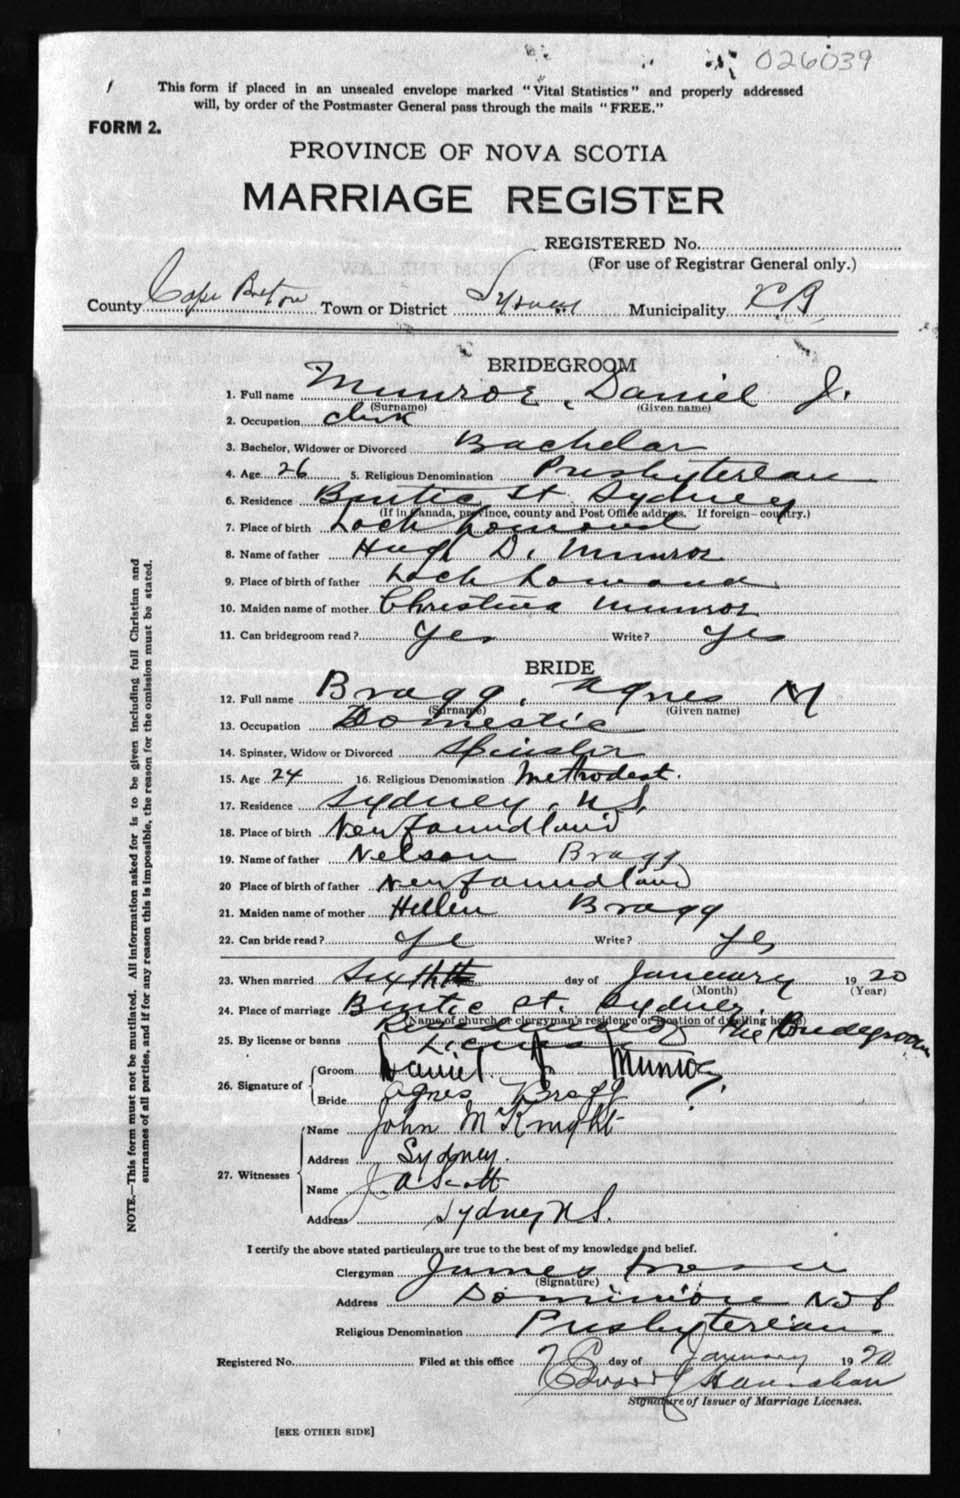 026039
This form if placed in an unsealed envelope marked "Vital Statistics" and properly addressed
will, by order of the Postmaster General pass through the mails "FREE."
FORM 2.
PROVINCE OF NOVA SCOTIA
MARRIAGE REGISTER
REGISTERED No.
(For use of Registrar General only.)
County Cape Breton Town or District Sydney Municipality C B
BRIDEGROOM
1. Full name Munroe, Daniel J.
(Surname) (Given name)
2. Occupation clerk
3. Bachelor, Widower or Divorced Bachelor
4. Age 26 5. Religious Denomination Presbyterian
6. Residence St Sydney
(If in Canada, province, county and Post Office address. If foreign—country.)
7. Place of birth Loch Lomond
8. Name of father Hugh D. Munroe
9. Place of birth of father Loch Lomond
10. Maiden name of mother Christina Munroe
11. Can bridegroom read? Yes Write? Yes
BRIDE
12. Full name Bragg, Agnes M
(Surname) (Given name)
13. Occupation Domestic
14. Spinster, Widow or Divorced Spinster
15. Age 24 16. Religious Denomination Methodest.
17. Residence Sydney, N.S.
18. Place of birth Newfoundland
19. Name of father Nelson Bragg
20 Place of birth of father Newfoundland
21. Maiden name of mother Hellen Bragg
22. Can bride read? Ye Write? Yes
23. When married Sixth day of January 1920
(Month) (Year)
24. Place of marriage St. Sydney
(Name of church or clergyman's residence or location of dwelling house)
Residence of the Bridegroom
25. By license or banns License
26. Signature of Groom Daniel J Munroe
Bride Agnes Bragg
27. Witnesses Name John McKnight
Address Sydney.
Name J. A Scott
Address Sydney N S.
I certify the above stated particulars are true to the best of my knowledge and belief.
Clergyman James Fraser
(Signature)
Address Dominion No 6
Religious Denomination Presbyterian
Registered No. Filed at this office 7 day of January 1920
Signature of Issuer of Marriage Licenses.
[SEE OTHER SIDE]
NOTE.—This form must not be mutilated. All information asked for is to be given including full Christian and
surnames of all parties, and if for any reason this is impossible, the reason for the omission must be stated.